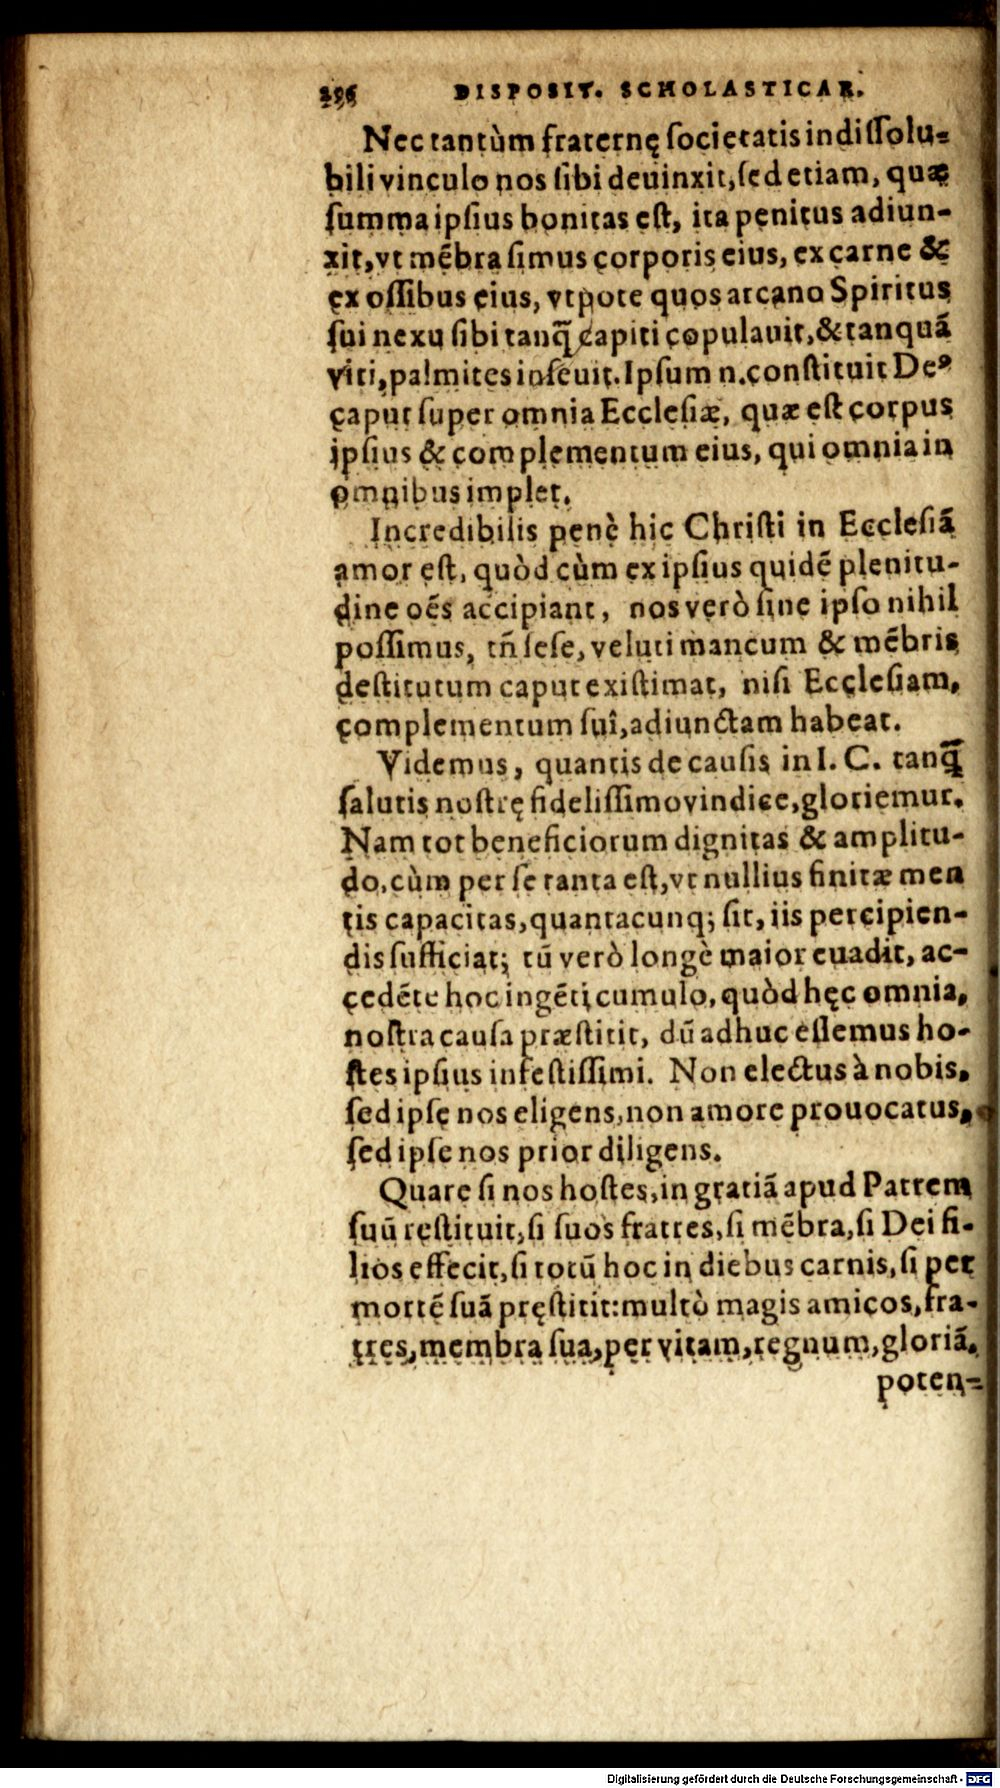 256 DISPOSIT. SCHOLASTICAR.
Nec tantùm fraternę societatis indissolu-
bili vinculo nos sibi deuinxit, sed etiam, quæ
summa ipsius bonitas est, ita penitus adiun-
xit, vt mẽbra simus corporis eius, ex carne &
ex ossibus eius, vtpote quos arcano Spiritus
sui nexu sibi tanq̃ capiti copulauit, & tanquã
viti, palmites inseuit. Ipsum n. constituit Deꝰ
caput super omnia Ecclesiæ, quæ est corpus
ipsius & complementum eius, qui omnia in
omnibus implet.
Incredibilis penè hic Christi in Ecclesiã
amor est, quòd cùm ex ipsius quidẽ plenitu-
dine oẽs accipiant, nos verò sine ipso nihil
possimus, tñ sese, veluti mancum & mẽbris
destitutum caput existimat, nisi Ecclesiam,
complementum suî, adiunctam habeat.
Videmus, quantis de causis in I. C. tanq̃
salutis nostrę fidelissimo vindice, gloriemur.
Nam tot beneficiorum dignitas & amplitu-
do, cùm per se tanta est, vt nullius finitæ men
tis capacitas, quantacunq; sit, iis percipien-
dis sufficiat; tũ verò longè maior euadit, ac-
cedẽte hoc ingẽti cumulo, quòd hęc omnia,
nostra causa præstitit, dũ adhuc essemus ho-
stes ipsius infestissimi. Non electus à nobis,
sed ipse nos eligens, non amore prouocatus,
sed ipse nos prior diligens.
Quare si nos hostes, in gratiã apud Patrem
suũ restituit, si suos fratres, si mẽbra, si Dei fi-
lios effecit, si totũ hoc in diebus carnis, si per
mortẽ suã pręstitit: multò magis amicos, fra-
tres, membra sua, per vitam, regnum, gloriã,
poten-
Digitalisierung gefördert durch die Deutsche Forschungsgemeinschaft - DFG